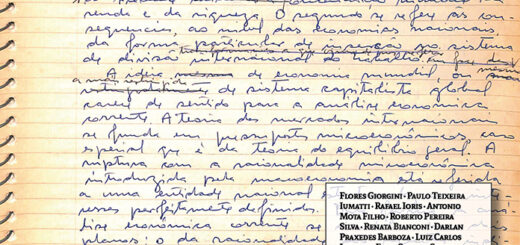 renda e da riqueza. O segundo se refere às con-
sequencias, ao nivel das economias nacionais,
da forma particular de inserção no sistema
de divisão internacional do trabalho
A idéia de economia mundial, ou
de sistema capitalista global
carece de sentido para a análise economica
corrente. A teoria dos mercados internacionais
se funda em pressupostos microeconômicos, caso
especial que é da teoria do equilibrio geral. A
ruptura com a racionalidade microeconômica
introduzida pela macroeconomia está referida
a uma entidade nacional
perfeitamente definidos.
lise economica corrente se
planos: o da racionalidade
FLORES GIORGINI · PAULO TEIXEIRA
IUMATTI · RAFAEL IORIS · ANTONIO
MOTA FILHO · ROBERTO PEREIRA
SILVA · RENATA BIANCONI · DARLAN
PRAXEDES BARBOZA · LUIZ CARLOS